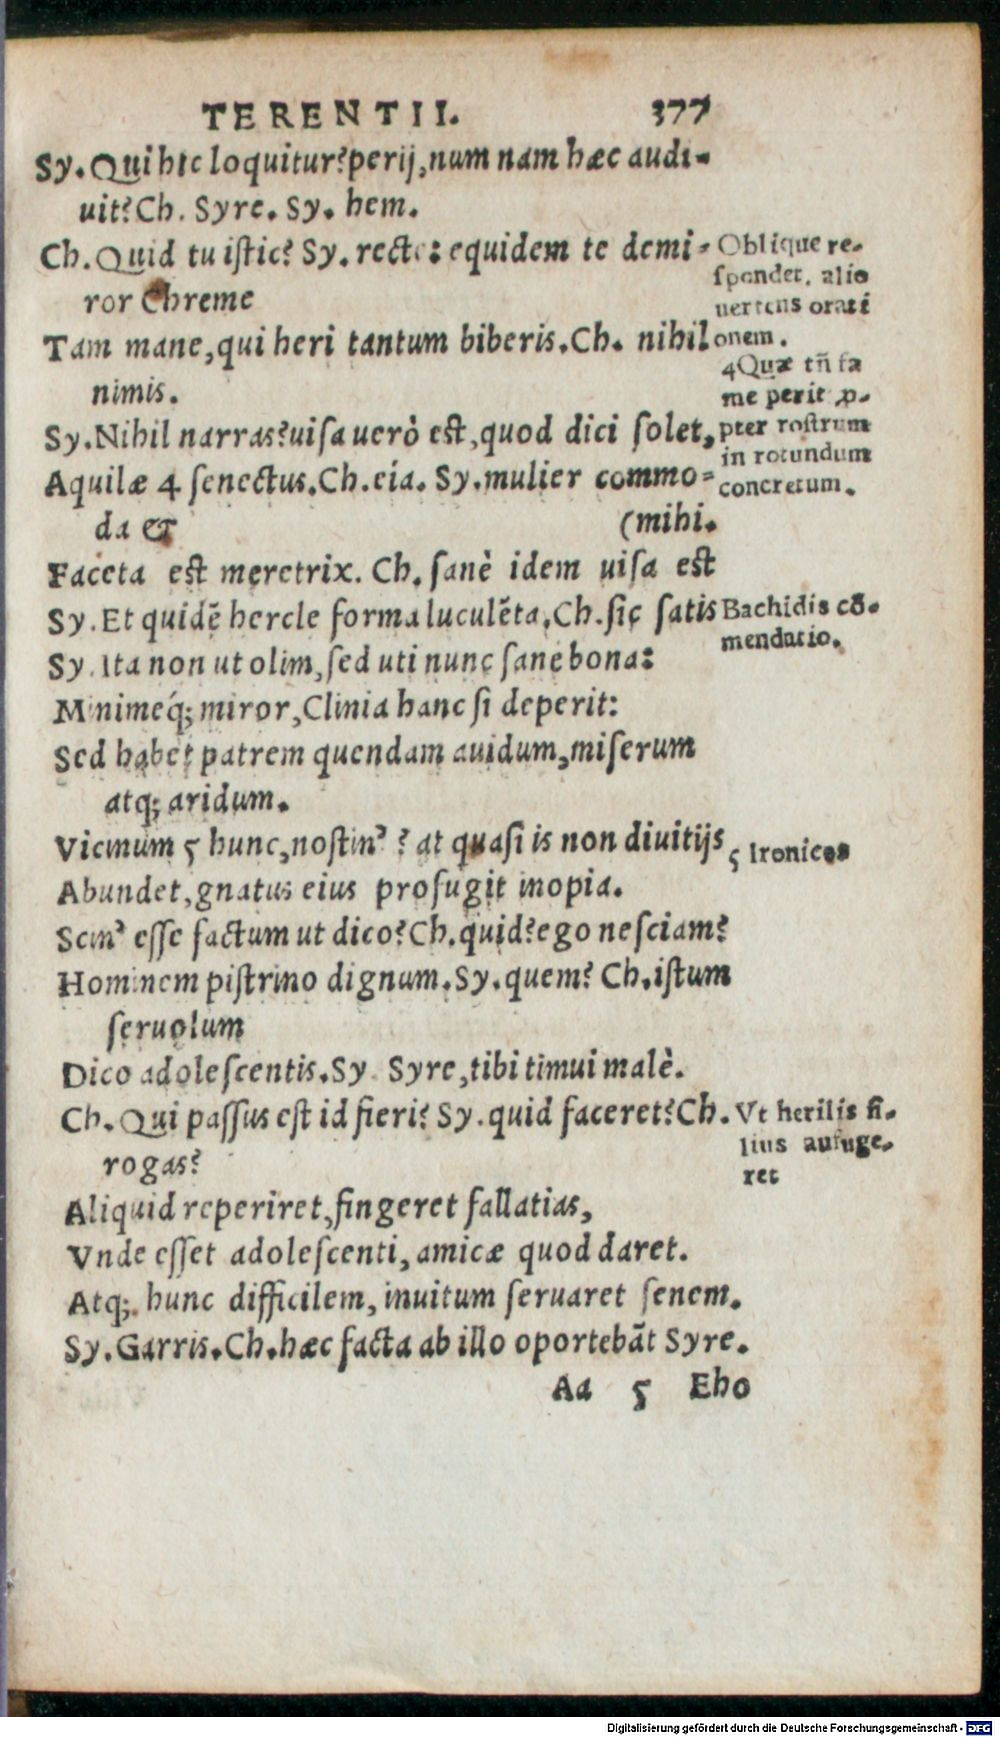 TERENTII. 377
Sy. Qui hic loquitur? perij, num nam hæc audi-
uit? Ch. Syre. Sy. hem.
Ch. Quid tu iſtic? Sy. recte: equidem te demi-
ror Chreme
Tam mane, qui heri tantum biberis. Ch. nihil
nimis.
Sy. Nihil narras? uiſa uerò eſt, quod dici ſolet,
Aquilæ 4 ſenectus. Ch. eia. Sy. mulier commo-
da & (mihi.
Faceta eſt meretrix. Ch. ſanè idem uiſa eſt
Sy. Et quidẽ hercle forma luculẽta. Ch. ſic ſatis
Sy. Ita non ut olim, ſed uti nunc ſane bona:
Minimeq́; miror, Clinia hanc ſi deperit:
Sed habet patrem quendam auidum, miſerum
atq; aridum.
Vicinum 5 hunc, noſtin’? at quaſi is non diuitijs
Abundet, gnatus eius profugit inopia.
Scin’ eſſe factum ut dico? Ch. quid? ego neſciam?
Hominem piſtrino dignum. Sy. quem? Ch. iſtum
ſeruolum
Dico adoleſcentis. Sy Syre, tibi timui malè.
Ch. Qui paſſus eſt id fieri? Sy. quid faceret? Ch.
rogas?
Aliquid reperiret, fingeret fallatias,
Vnde eſſet adoleſcenti, amicæ quod daret.
Atq; hunc difficilem, inuitum ſeruaret ſenem.
Sy. Garris. Ch. hæc facta ab illo oportebãt Syre.
Aa 5 Eho
Oblique re-
ſpondet, alio
uertens orati
onem.
4 Quæ tñ fa
me perit ꝓ-
pter roſtrum
in rotundum
concretum.
Bachidis cõ-
mendatio.
5 Ironicos
Vt herilis fi-
lius aufuge-
ret
Digitalisierung gefördert durch die Deutsche Forschungsgemeinschaft - DFG